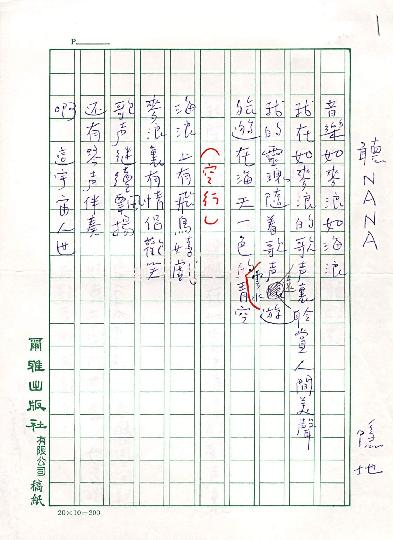 1
P
聽NANA 隱地
音樂如麥浪如海浪
我在如麥浪的歌声裏聆賞人間美聲
我的靈魂隨着歌声遊
遊在海天一色的雲水青空
(空行)
海浪上有飛鳥嬉戲
麥浪裏有情侶歡笑
歌声继續飄揚
还有琴声伴奏
啊 這宇宙人世
爾雅出版社有限公司稿紙
20×10=200